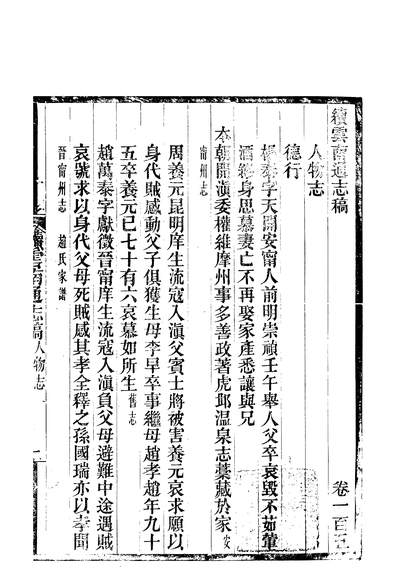 續雲南通志稿 卷一百五
人物志
德行
泰字天安甯人前明崇禎壬午舉人父卒哀毀不茹葷
酒終身思慕妻亡不再娶家產悉讓與兄
本朝開滇委權維摩州事多善政著虎邱温泉志藁藏於家安
甯州志
周養元昆明庠生流寇入滇父賓士將被害養元哀求願以
身代賊感動父子俱獲生母李早卒事繼母趙孝趙年九十
五卒養元已七十有六哀慕如所生舊志
趙萬泰字獻徵晉甯庠生流寇入滇負父母避難中途遇賊
哀號求以身代父母死賊感其孝全釋之孫國瑞亦以孝聞
晉甯州志 趙氏家譜
續雲南通志稿人物志 一